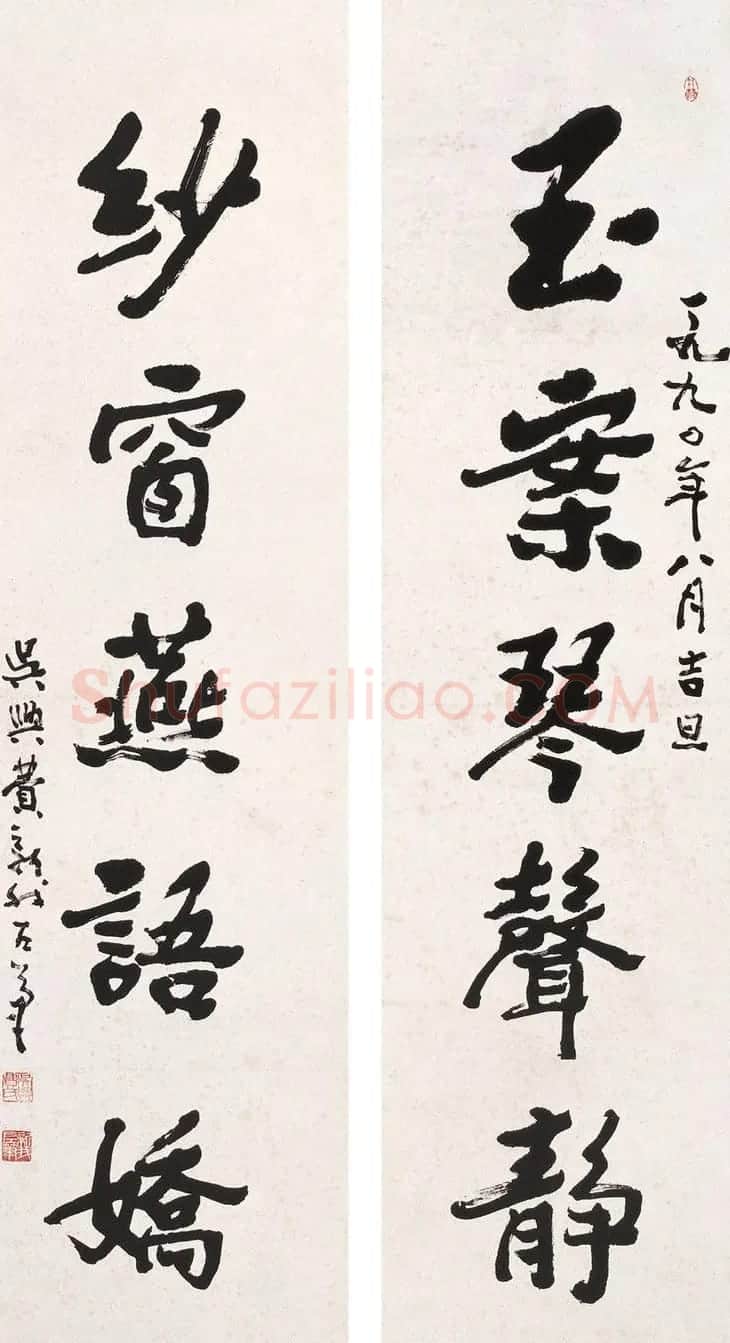 玉案琴聲静
一九九〇年八月吉旦
紗窗燕語嬌
吳興費新我左筆
Shufaziliao.COM